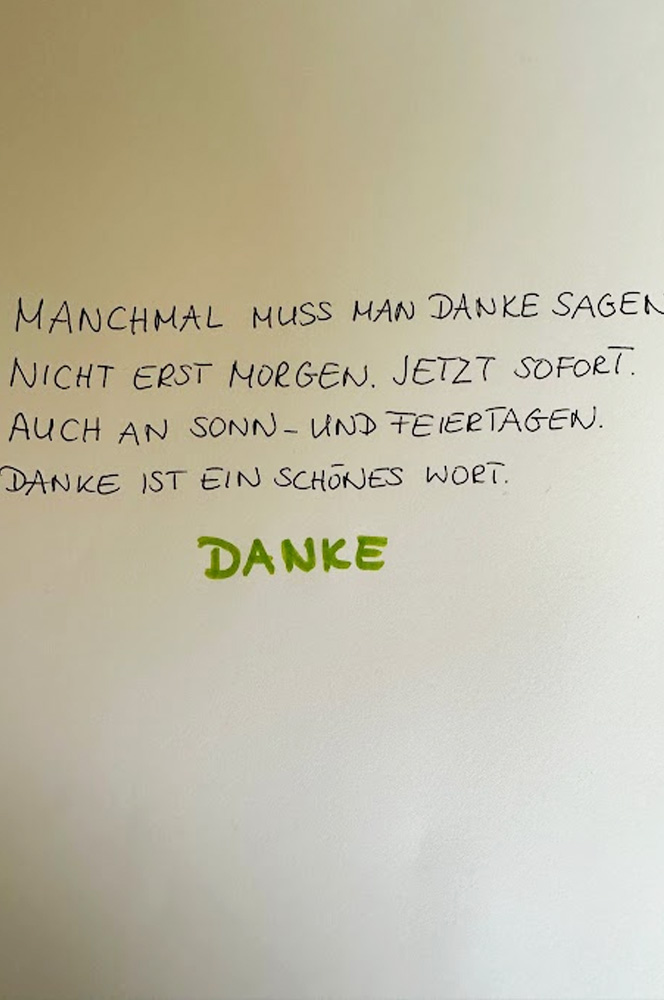 MANCHMAL MUSS MAN DANKE SAGEN
NICHT ERST MORGEN. JETZT SOFORT.
AUCH AN SONN- UND FEIERTAGEN.
DANKE IST EIN SCHÖNES WORT.
DANKE